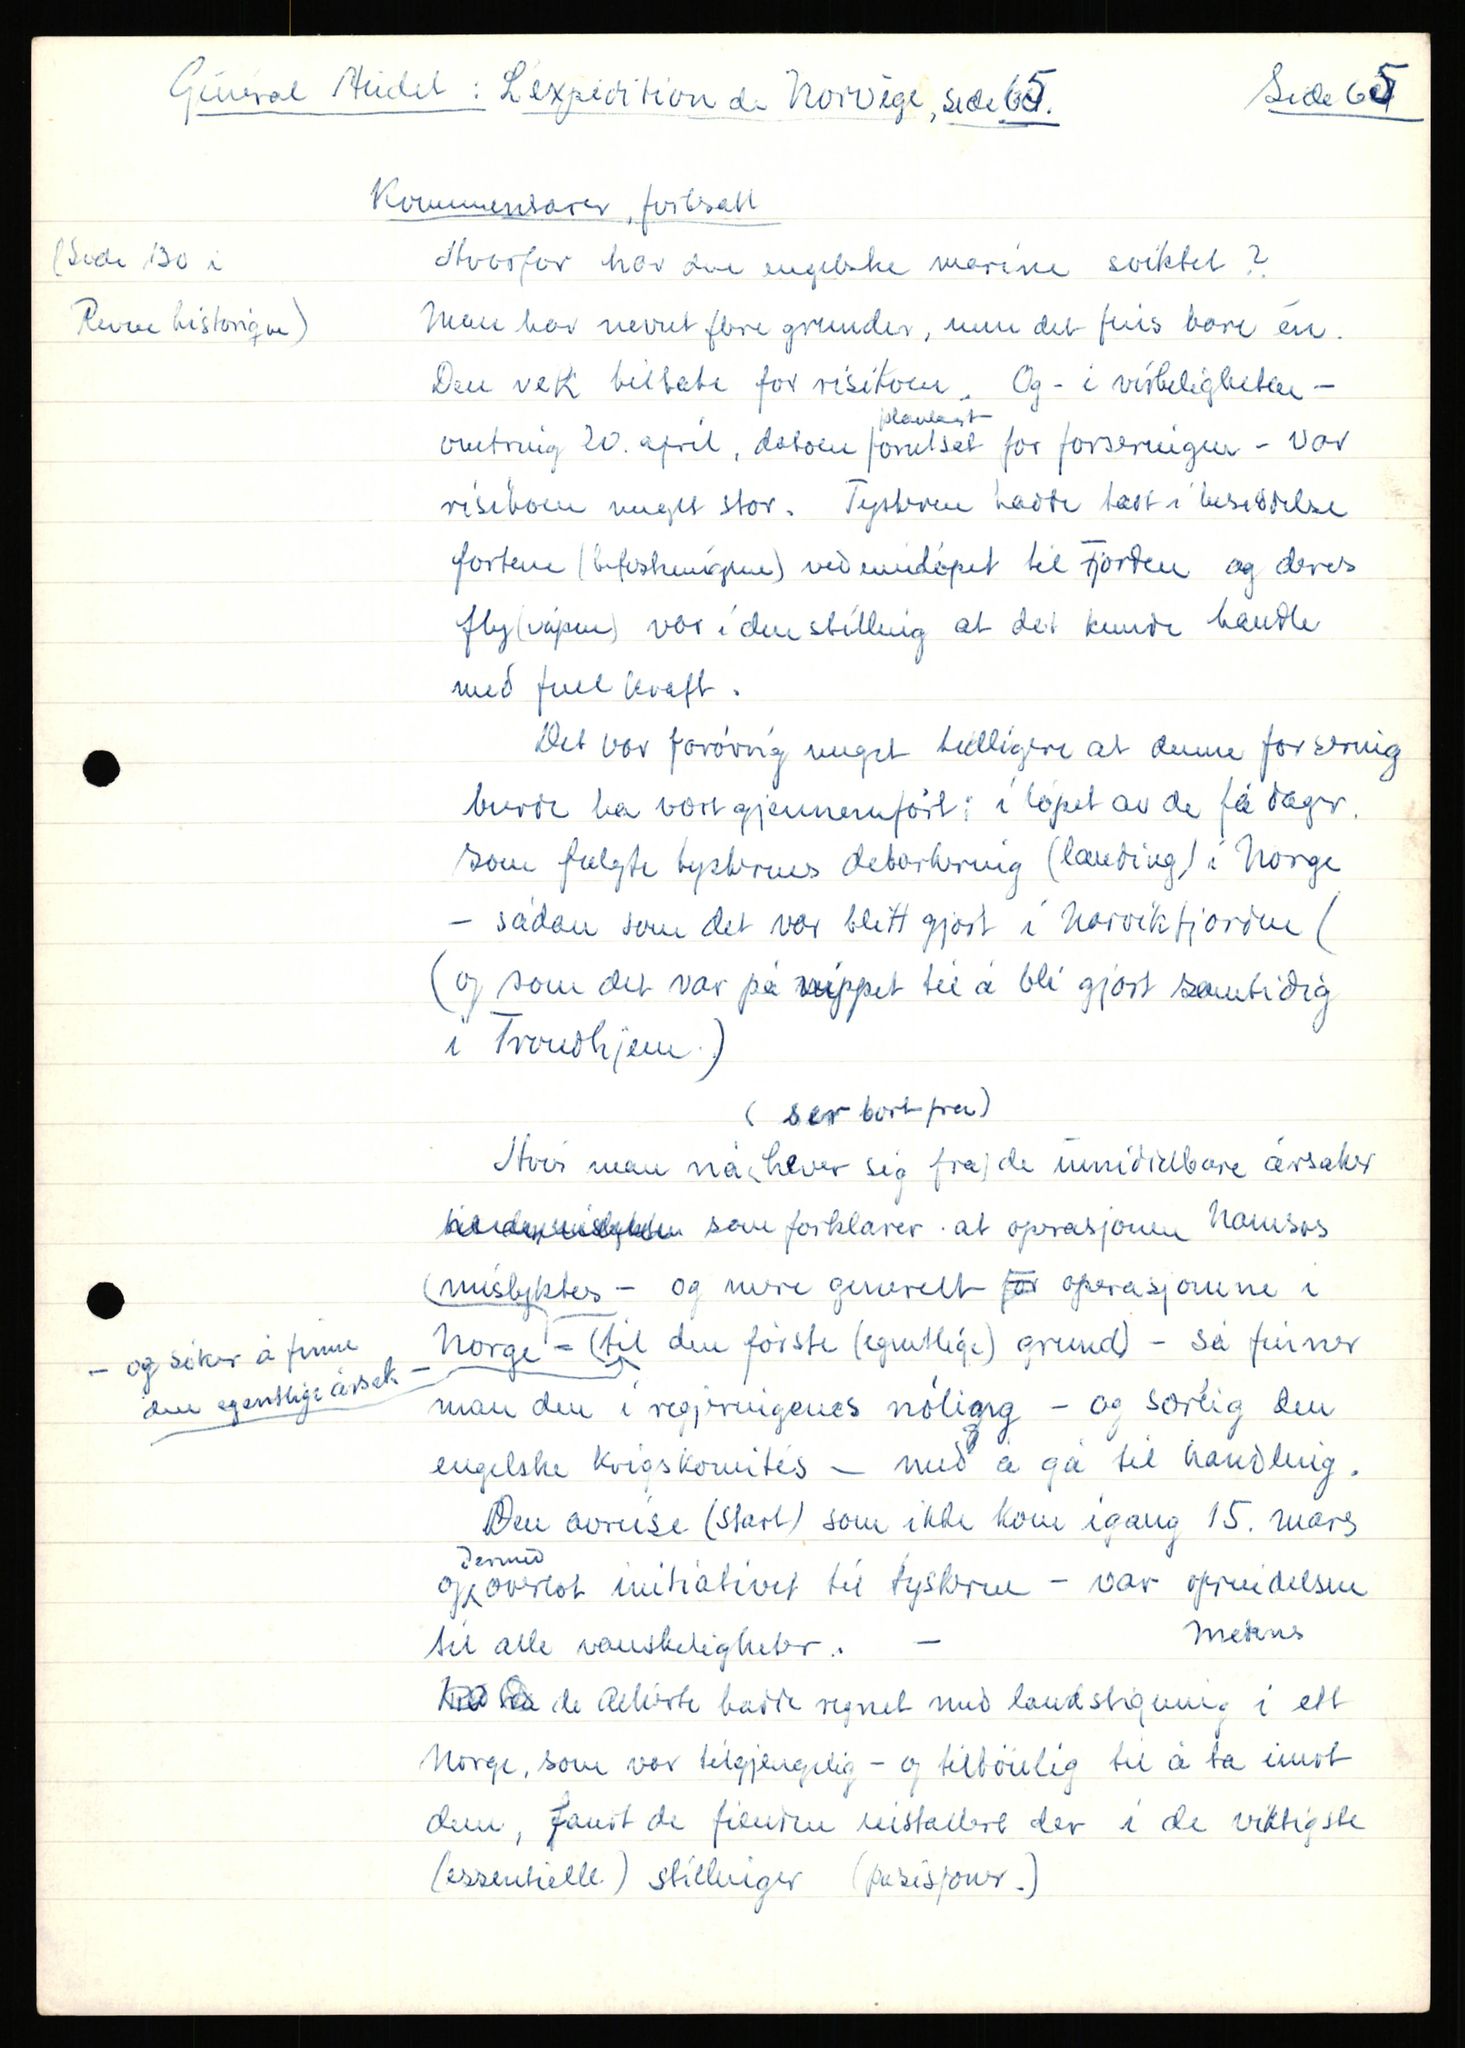 Général Audet : L'expédition de Norvège, side 65.
Side 65
Kommentarer, fortsatt
(Side 130 i
Revue historique)
Hvorfor har den engelske marine sviktet ?
Man har nevnt flere grunder, men det fins bare én.
Den vek tilbake for risikoen. Og - i virkeligheten -
planlagt
omtring 20. april, datoen forutsat for forseringen - var
risikoen meget stor. Tyskerne hadde tatt i besiddelse
fortene (befestningene) ved innløpet til Fjorden og deres
fly(våpen) var i den stilling at det kunde handle
med full kraft.
Det var forøvrig meget tidligere at denne forsering
burde ha vært gjennemført: i løpet av de få dager.
som fulgte tyskernes debarkering (landing) i Norge
- sådan som det var blitt gjort i Narvikfjorden (
(og som det var på nippet til å bli gjort samtidig
i Trondhjem.)
(ser bort fra)
Hvis man nå (hever sig fra) de umiddelbare årsaker
som forklarer at operasjonen Namsos
(mislyktes - og mere generelt for operasjonene i
Norge - (til den første (egentlige) grund) - så finner
- og søker å finne
den egentlige årsak -
man den i regjeringenes nøling - og særlig den
engelske krigskomités - med å gå til handling.
Den avreise (start) som ikke kom igang 15. mars
dermed
og overlot initiativet til tyskerne - var oprindelsen
til alle vanskeligheter. -
Mens
de Allierte hadde regnet med landstigning i ett
Norge, som var tilgjengelig - og tilbøielig til å ta imot
dem, fandt de fienden installert der i de viktigste
(essentielle) stillinger (posisjoner.)